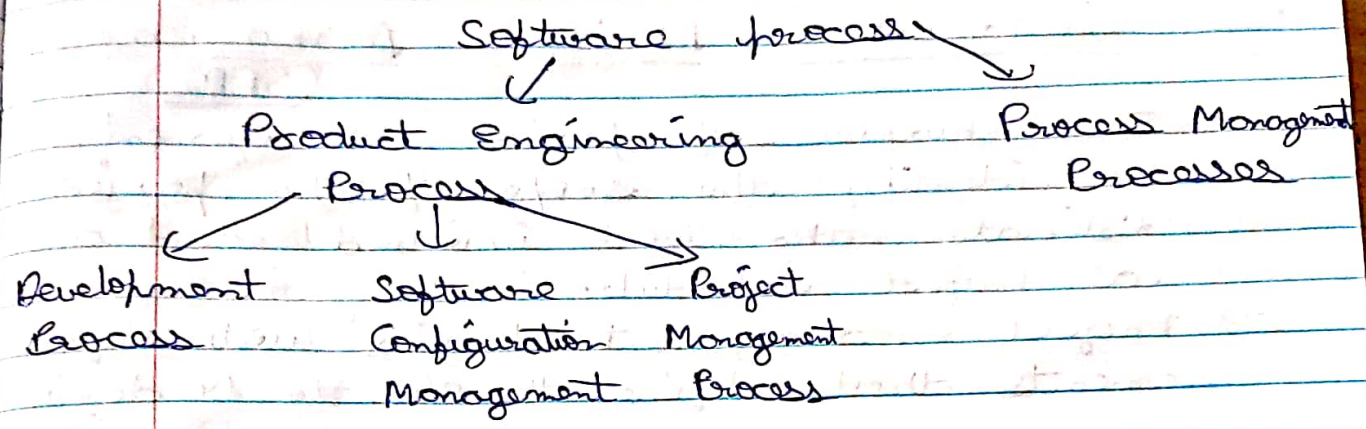 Software process
Product Engineering
Process
Process Management
Processes
Development
Process
Software
Configuration
Management
Project
Management
Process